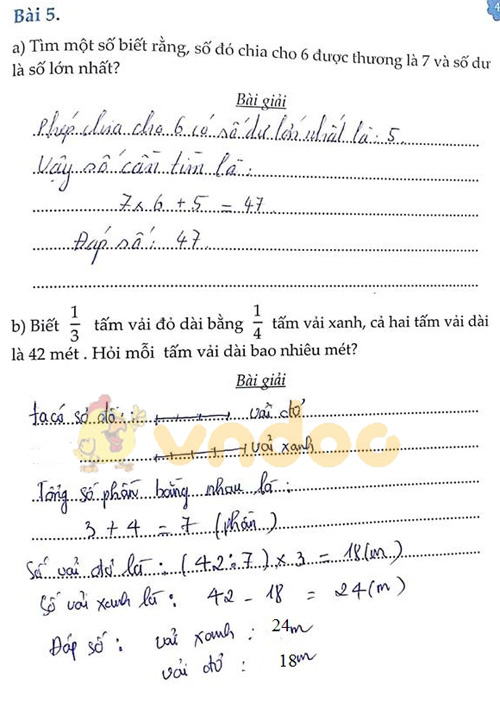 4
Bài 5.
a) Tìm một số biết rằng, số đó chia cho 6 được thương là 7 và số dư
là số lớn nhất?
Bài giải
Phép chia cho 6 có số dư lớn nhất là: 5
Vậy số cần tìm là:
7 x 6 + 5 = 47
Đáp số: 47
b) Biết 1/3 tấm vải đỏ dài bằng 1/4 tấm vải xanh, cả hai tấm vải dài
là 42 mét . Hỏi mỗi tấm vải dài bao nhiêu mét?
Bài giải
Ta có sơ đồ: vải đỏ
vải xanh
vndoc
Tổng số phần bằng nhau là:
3 + 4 = 7 (phần)
Số vải đỏ là: (42:7) x 3 = 18(m)
Số vải xanh là: 42 - 18 = 24(m)
Đáp số: vải xanh : 24m
vải đỏ : 18m